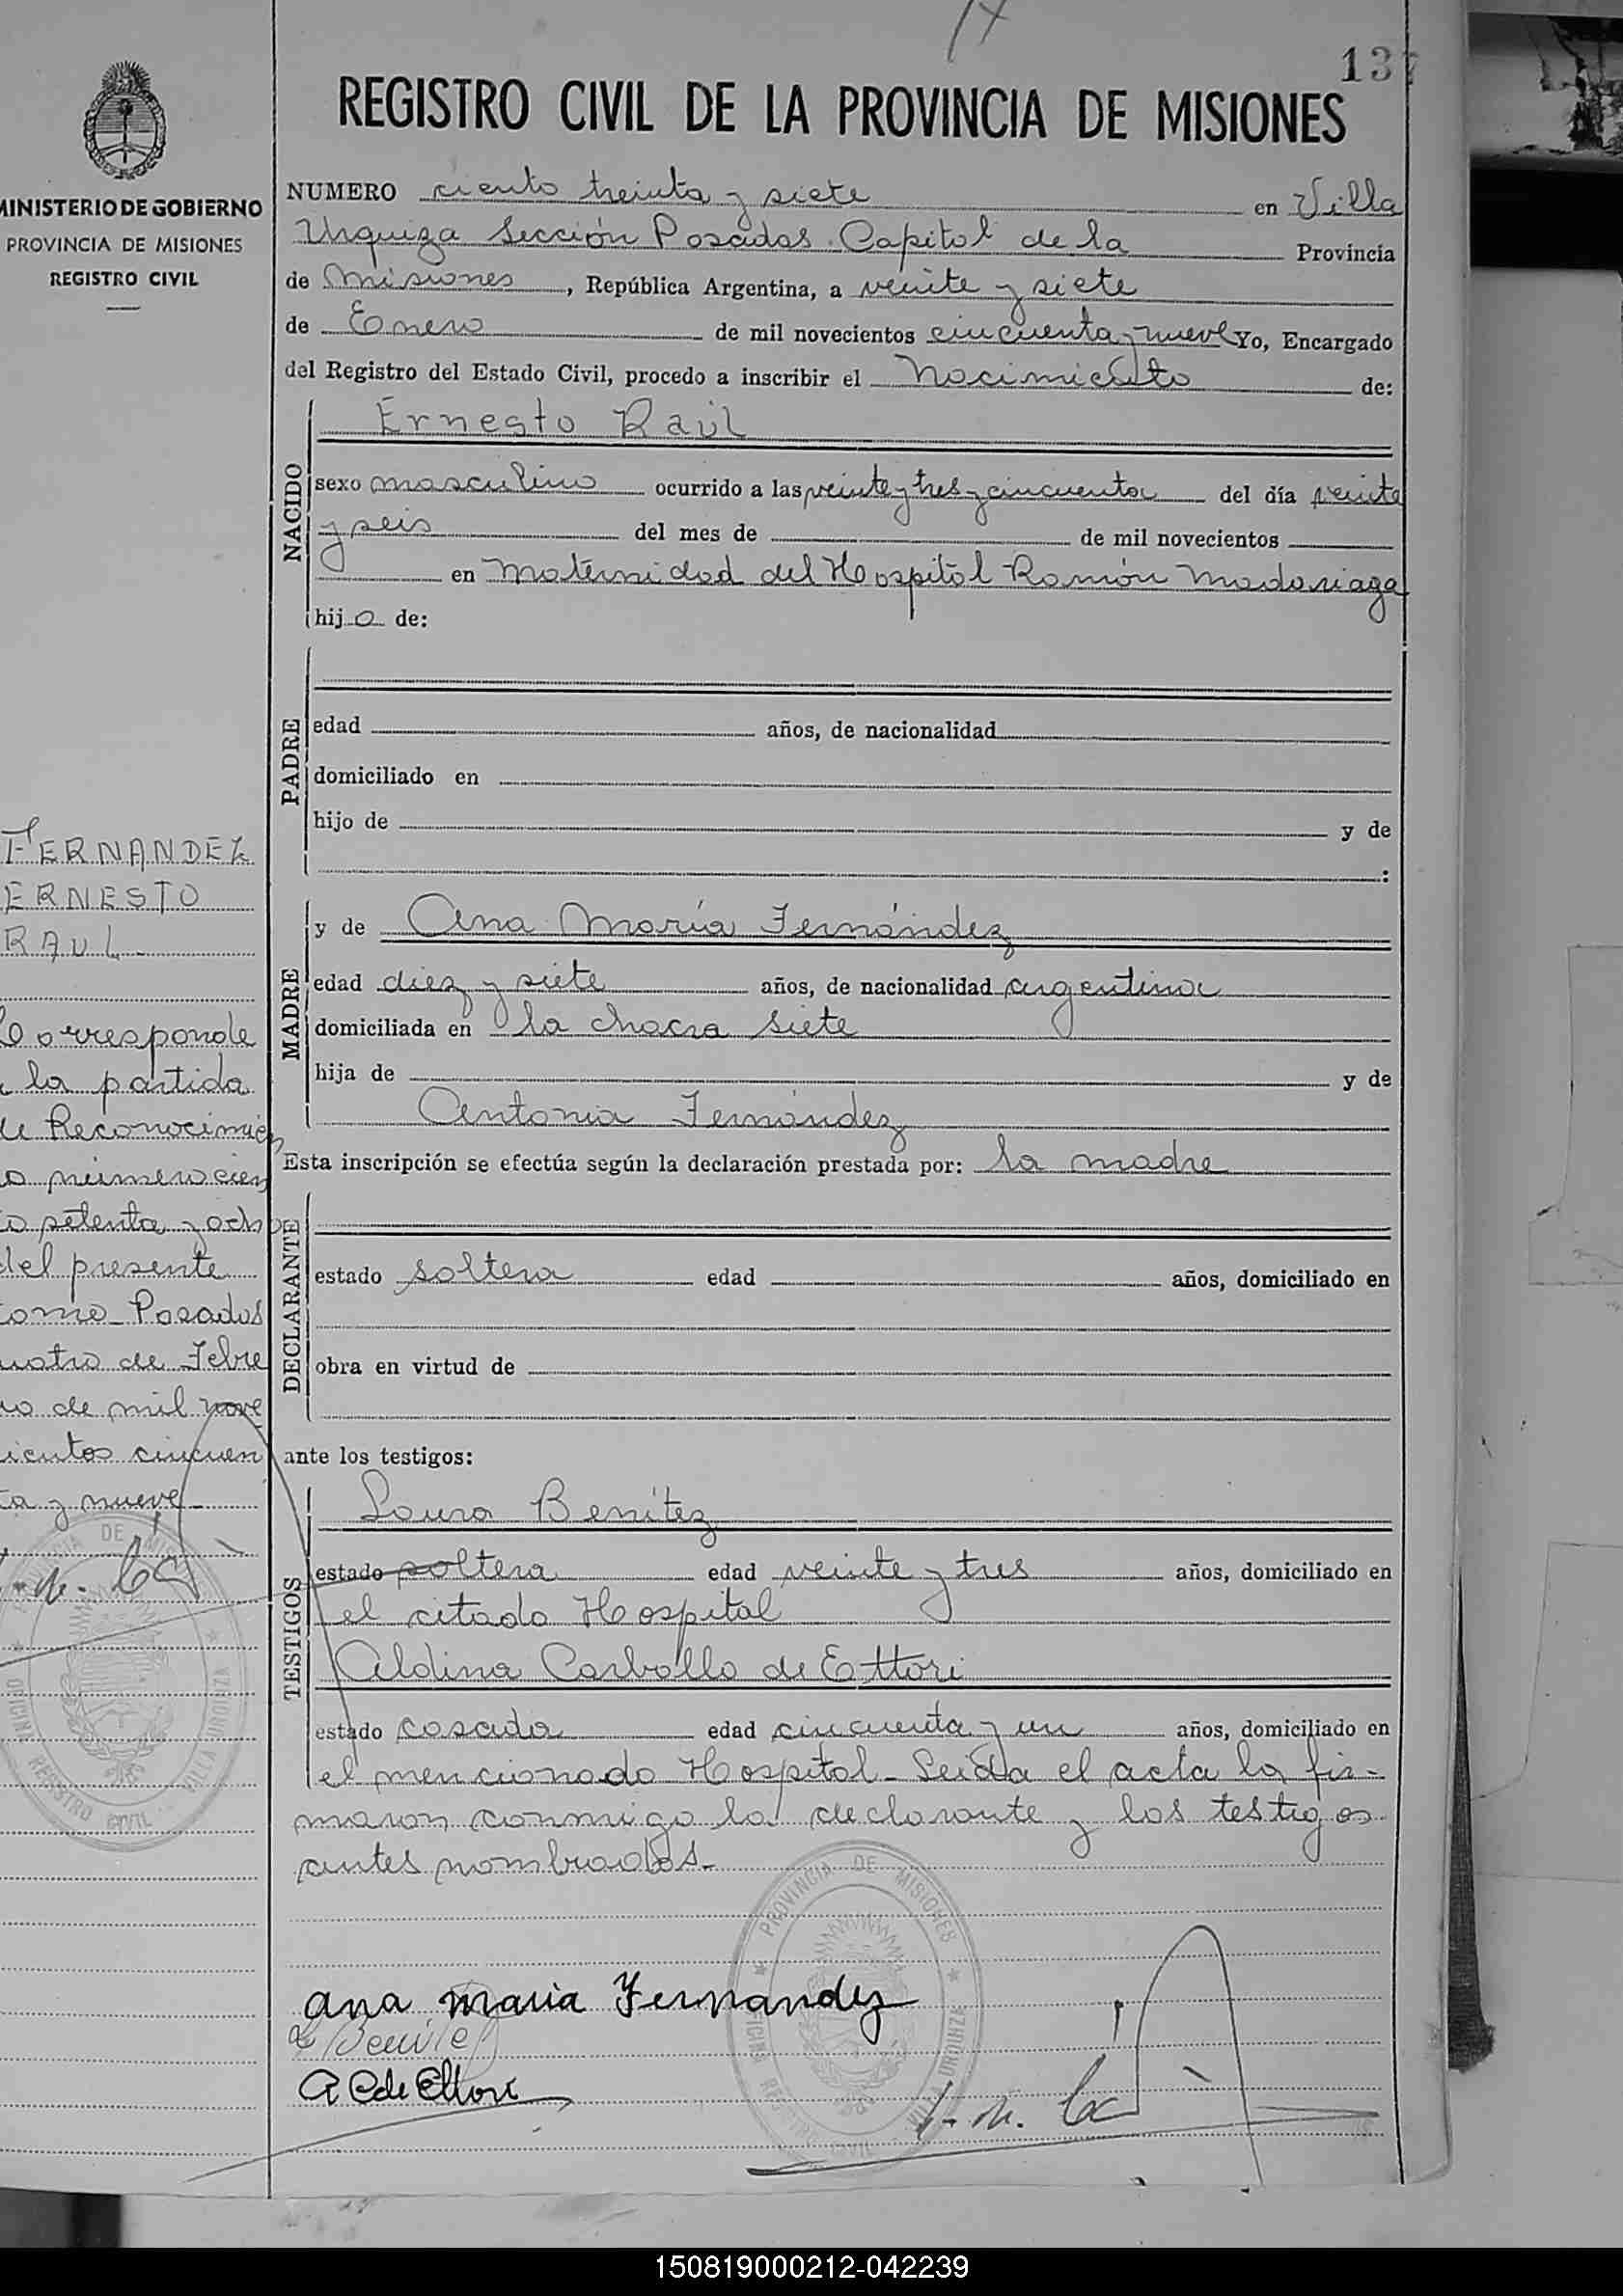 137
REGISTRO CIVIL DE LA PROVINCIA DE MISIONES
MINISTERIO DE GOBIERNO
PROVINCIA DE MISIONES
REGISTRO CIVIL
NUMERO ciento treinta y siete en Villa
Urquiza Sección Posadas Capital de la Provincia
de Misiones, República Argentina, a veinte y siete
de Enero de mil novecientos cincuenta y nueve Yo, Encargado
del Registro del Estado Civil, procedo a inscribir el Nacimiento de:
NACIDO
Ernesto Raúl
sexo masculino ocurrido a las veinte y tres y cincuenta del día veinte
y seis del mes de de mil novecientos
en Maternidad del Hospital Ramón Madariaga
hijo de:
PADRE
edad años, de nacionalidad
domiciliado en
hijo de y de
:
MADRE
y de Ana María Fernández
edad diez y siete años, de nacionalidad argentina
domiciliada en la chacra siete
hija de y de
Antonia Fernández
Esta inscripción se efectúa según la declaración prestada por: la madre
DECLARANTE
estado soltera edad años, domiciliado en
obra en virtud de
ante los testigos:
TESTIGOS
Laura Benítez
estado soltera edad veinte y tres años, domiciliado en
el citado Hospital
Aldina Carballo de Ettori
estado casada edad cincuenta y un años, domiciliado en
el mencionado Hospital - Leída el acta la fir-
maron conmigo la declarante y los testigos
antes nombrados.-
Ana Maria Fernandez
L Benite
A C de Ettori
PROVINCIA DE MISIONES
OFICINA REGISTRO CIVIL VILLA URQUIZA
FERNANDEZ
ERNESTO
RAUL
Corresponde
a la partida
de Reconocimien
to número cien
to setenta y ocho
del presente
tomo - Posadas
cuatro de Febre
ro de mil nove
cientos cincuen
ta y nueve
PROVINCIA DE MISIONES
OFICINA REGISTRO CIVIL VILLA URQUIZA
150819000212-042239